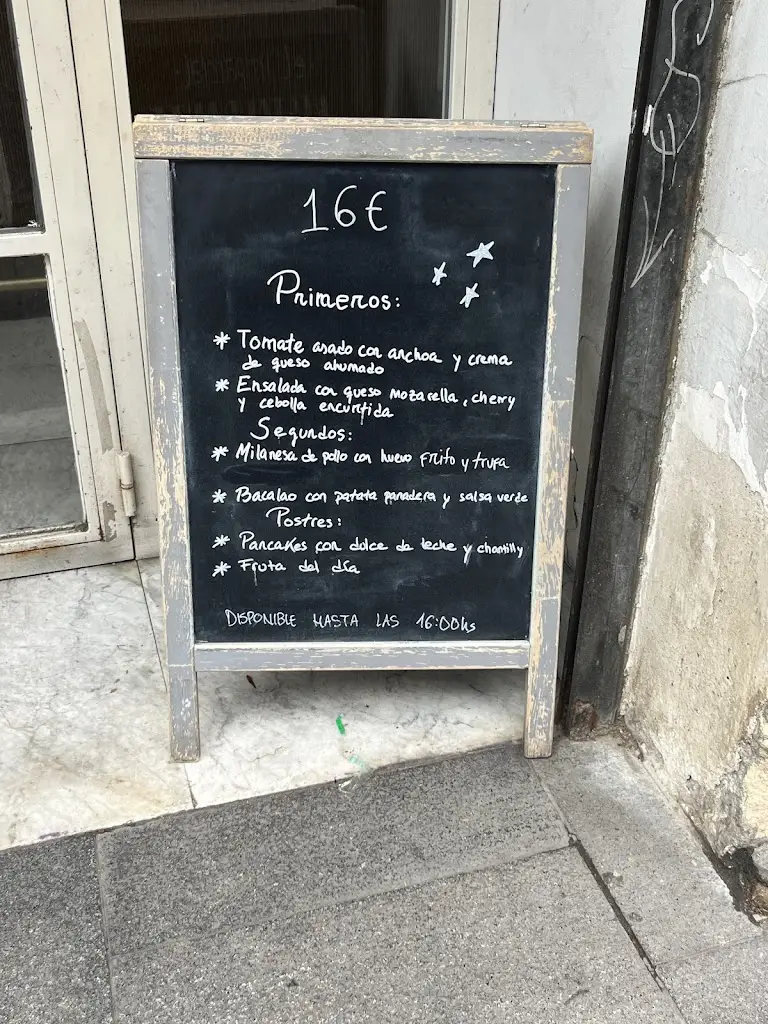 16€
Primeros:
* Tomate asado con anchoa y crema
de queso ahumado
* Ensalada con queso mozarella, cherry
y cebolla encurtida
Segundos:
* Milanesa de pollo con huevo frito y trufa
* Bacalao con patata panadera y salsa verde
Postres:
* Pancakes con dolce de leche y chantilly
* Fruta del día
DISPONIBLE HASTA LAS 16:00hs